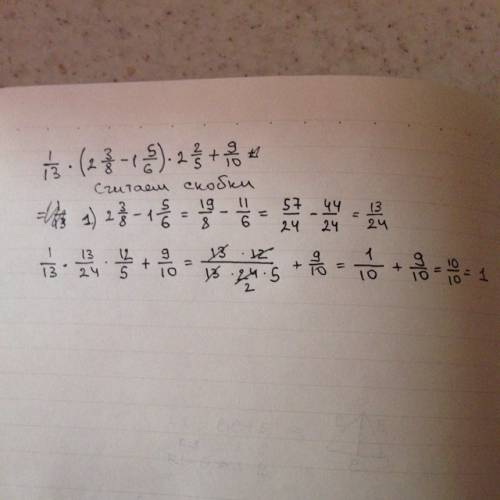 1/13 · (2 3/8 − 1 5/6) · 2 2/5 + 9/10
Считаем скобки
1) 2 3/8 − 1 5/6 = 19/8 − 11/6 = 57/24 − 44/24 = 13/24
1/13 · 13/24 · 12/5 + 9/10 = 13 · 12/13 · 24 · 5 2 + 9/10 = 1/10 + 9/10 = 10/10 = 1